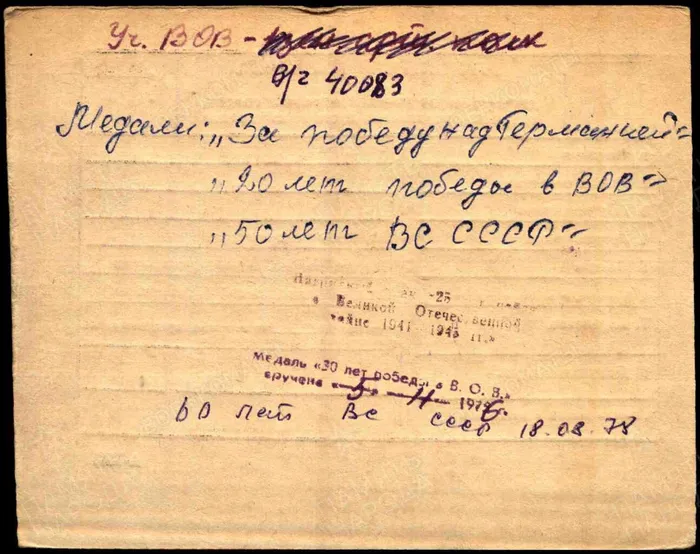 Уч. ВОВ -
в/ч 40083
Медали: „За победу над Германией"
„20 лет победы в ВОВ"
„50 лет ВС СССР"
25
в Великой Отечественной
войне 1941-1945 гг.»
Медаль «30 лет победы в В. О. В.»
вручена «5» 11 1976.
60 лет ВС СССР 18.08.78